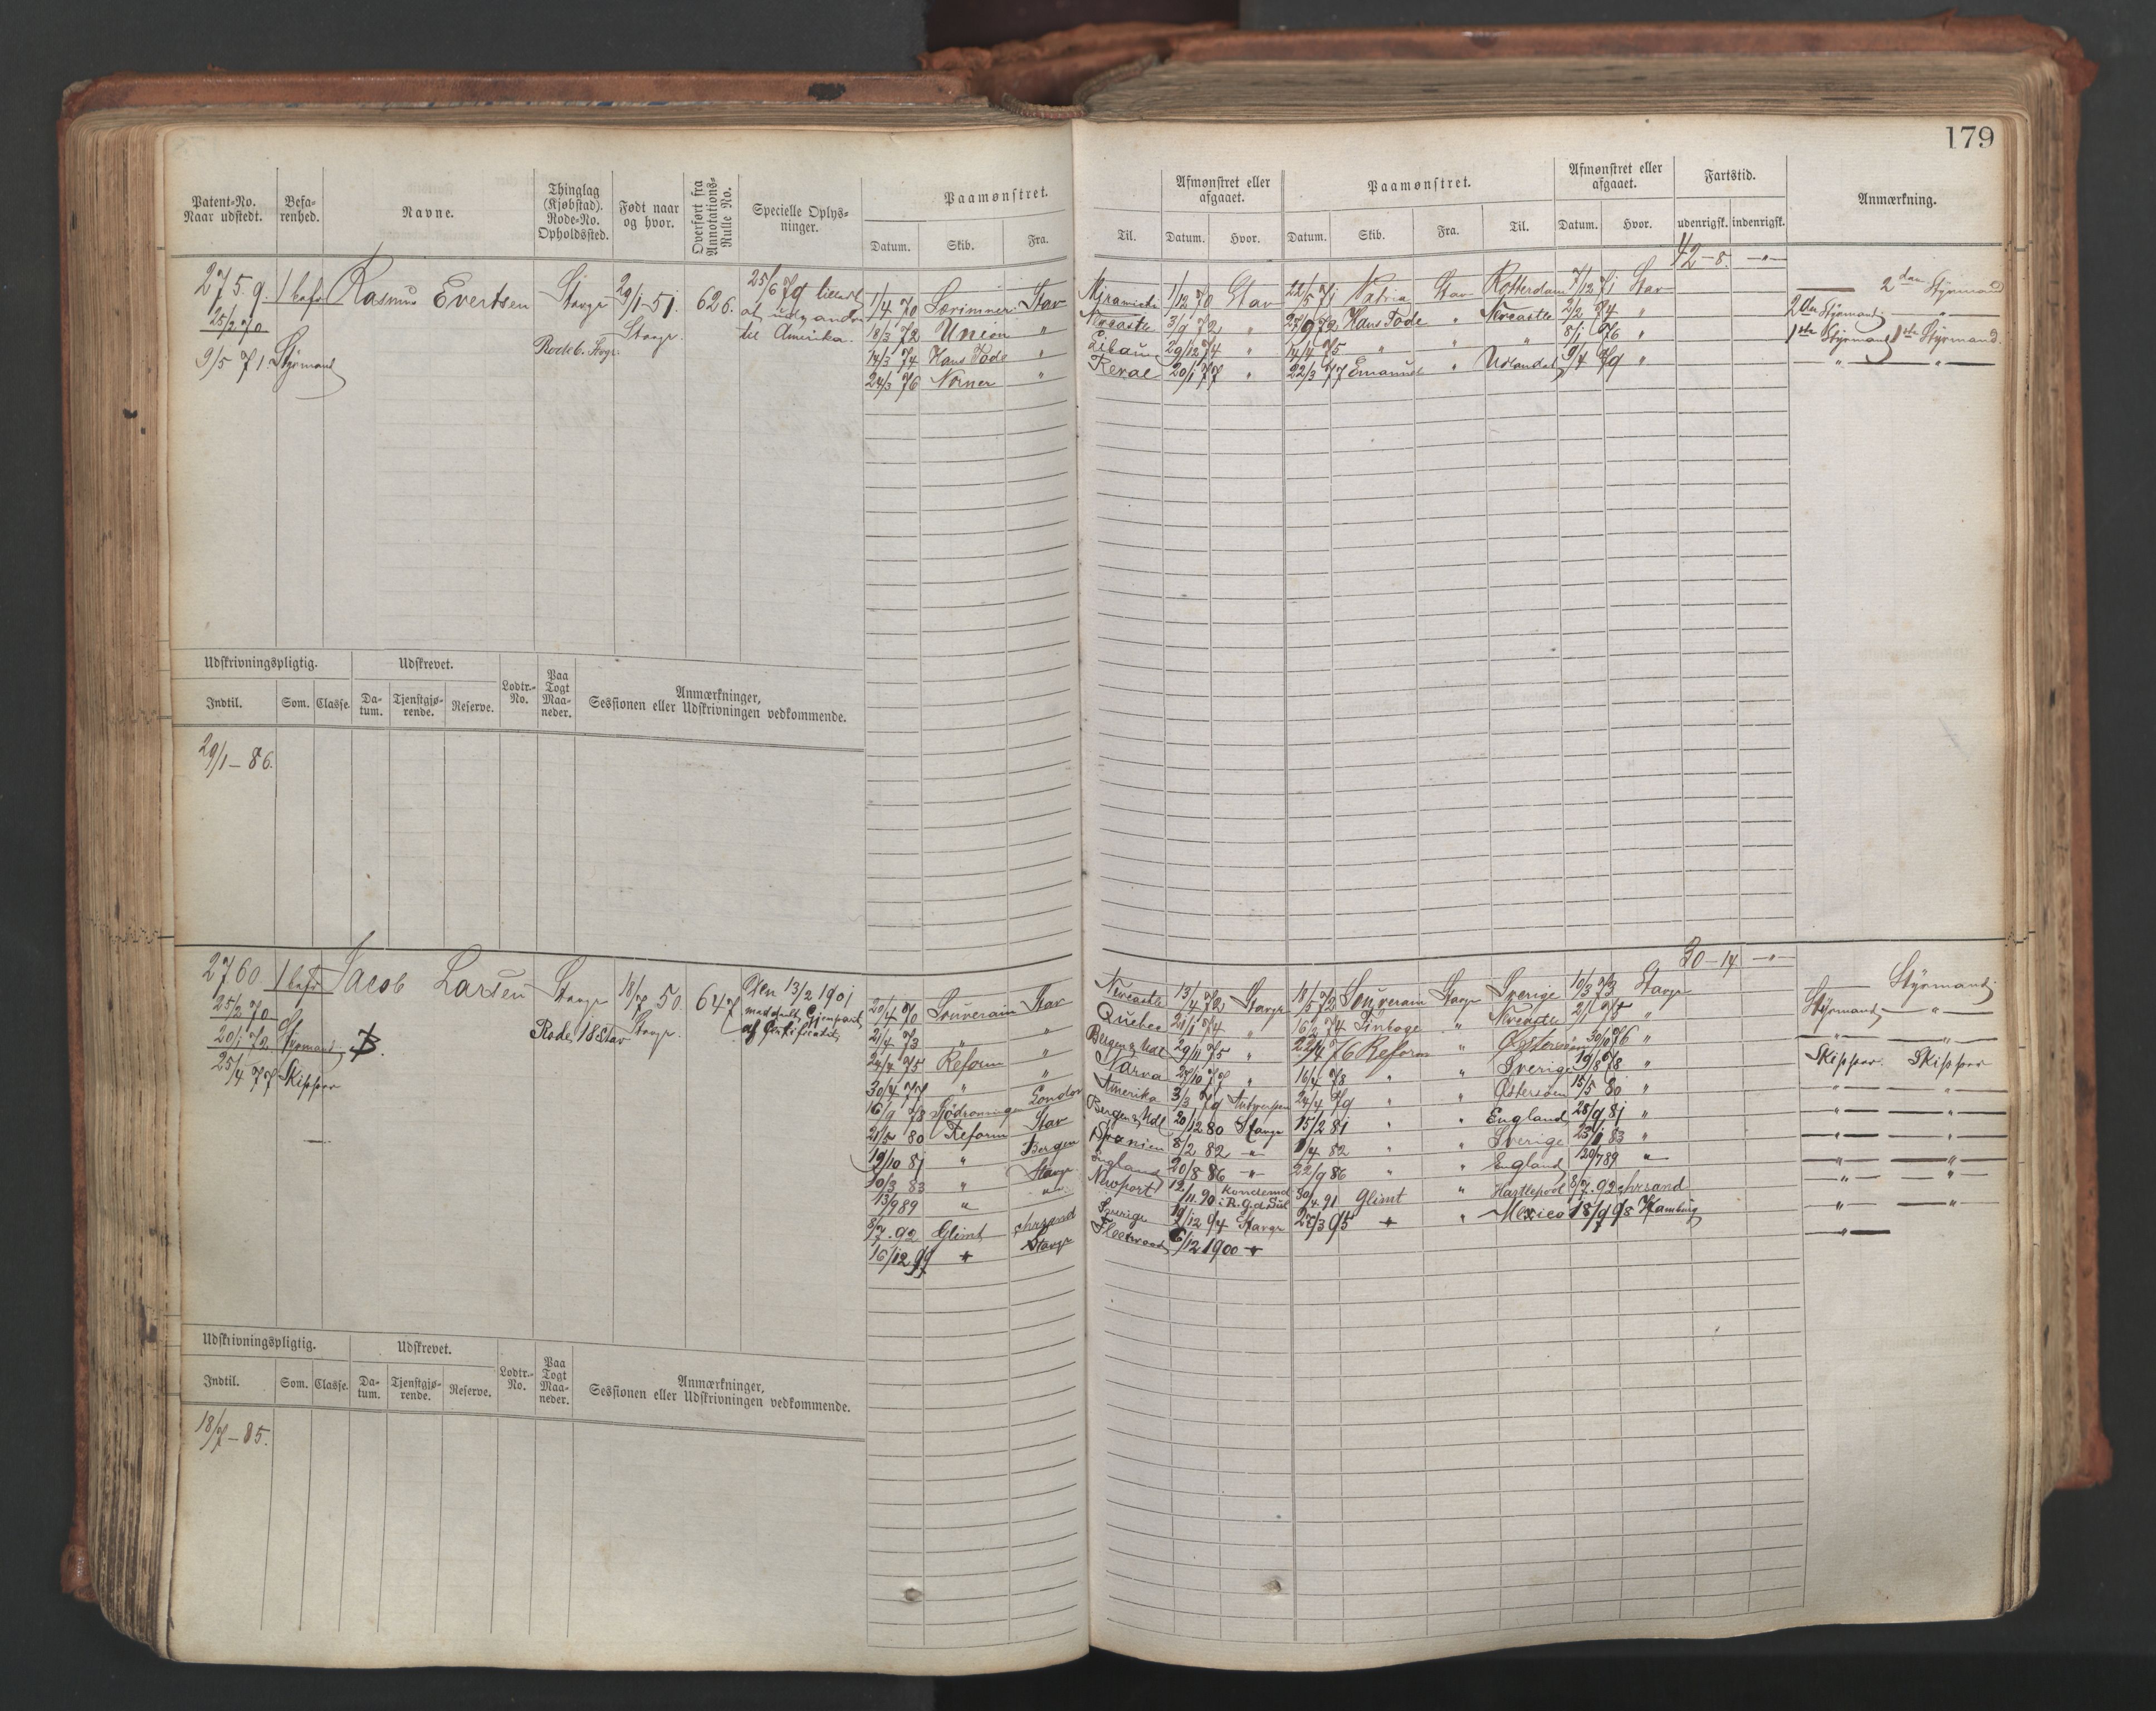 179
Patent-No. Naar udstedt.
Befarenhed.
Navne.
Thinglag (Kjøbstad). Rode-No. Opholdssted.
Født naar og hvor.
Overført fra Annotations-Rulle No.
Specielle Oplysninger.
Paamønstret.
Datum. Skib. Fra. Til.
Afmønstret eller afgaaet.
Datum. Hvor.
Paamønstret.
Datum. Skib. Fra. Til.
Afmønstret eller afgaaet.
Datum. Hvor.
Fartstid.
udenrigsk. indenrigsk.
Anmærkning.
42-8. -"-
2759. 1 bef. Rasmus Evertsen Stavgr 29/1-51. 626. 25/6 79
25/2 70 Stavgr. at udvandre
9/5 71. Styrmand Rode 6. Stvgr. til Amerika.
1/4 70 Særimner Stav 1/12 70 Stav 22/5 71 Patria Stav Rotterdam 7/12 71 Stav 2den Styrmand
18/3 72 Union " Newcastle 3/9 72 " 27/9 72 Hans Tode " Newcastle 2/2 74 " 2den Styrmand. — " —
14/3 74 Hans Tode " Libau 29/12 74 " 14/4 75 " " " 8/1 76 " 1ste Styrmand 1ste Styrmand.
24/3 76 Norner " Reval 20/1 77 " 22/3 77 Emanuel " Udlandet 9/4 79 " " — " —
Udskrivningspligtig. Udskrevet. Lodtr.-No. Paa Togt Maaneder. Anmærkninger, Sessionen eller Udskrivningen vedkommende.
Indtil. Som. Classe. Datum. Tjenstgjørende. Reserve.
29/1-86.
30-14 -"-
2760 1 bef. Jacob Larsen Stavgr 18/7 50 647 Den 13/2 1901
25/2 70 Rode 18 Stav Stavgr. meddelt Gjenpart
20/1 72 Styrmand B. af Certifikatet
25/4 77 Skipper
20/4 70 Souverain Stav Newcastle 13/4 72 Stavgr 18/5 72 Souverain Stavgr Sverige 10/3 73 Stavgr Styrmand.
21/4 73 " " Quebec 21/1 74 " 16/2 74 " Newcastle 2/1 75 " Styrmand — " —
24/4 75 Reform " Bergen & Udl 29/11 75 " 22/4 76 Reform " Østersøen 30/10 76 " " — " —
30/4 77 " " Narva 27/10 77 " 16/4 78 " " Sverige 19/8 78 " Skipper. Skipper
16/9 78 London Amerika 3/3 79 Antwerpen 24/4 79 " " Østersøen 15/5 80 " " — " —
21/5 80 Reform Stav Bergen & Udl 20/12 80 Stavgr 15/2 81 " " England 28/9 81 " " — " —
19/10 81 " Bergen Spanien 8/2 82 -"- 1/4 82 " " Sverige 23/1 83 " " — " —
30/3 83 " Stavgr England 20/8 86 -"- 22/9 86 " " England 20/7 89 -"- " — " —
13/9 89 " " Newport 12/11. 90 Kondemd i R. G. d. Sul 30/4. 91 Glimt " Hartlepool 8/7. 92 Chrsand " — " —
8/7. 92 Glimt Chrsand Sverige 19/12 94 Stavgr 27/3 95 " " Mexico 18/9 98 Hamburg " — " —
16/12 99 " Stavgr Fleetwood 6/12 1900 " " —
Udskrivningspligtig. Udskrevet. Lodtr.-No. Paa Togt Maaneder. Anmærkninger, Sessionen eller Udskrivningen vedkommende.
Indtil. Som. Classe. Datum. Tjenstgjørende. Reserve.
18/7-85.